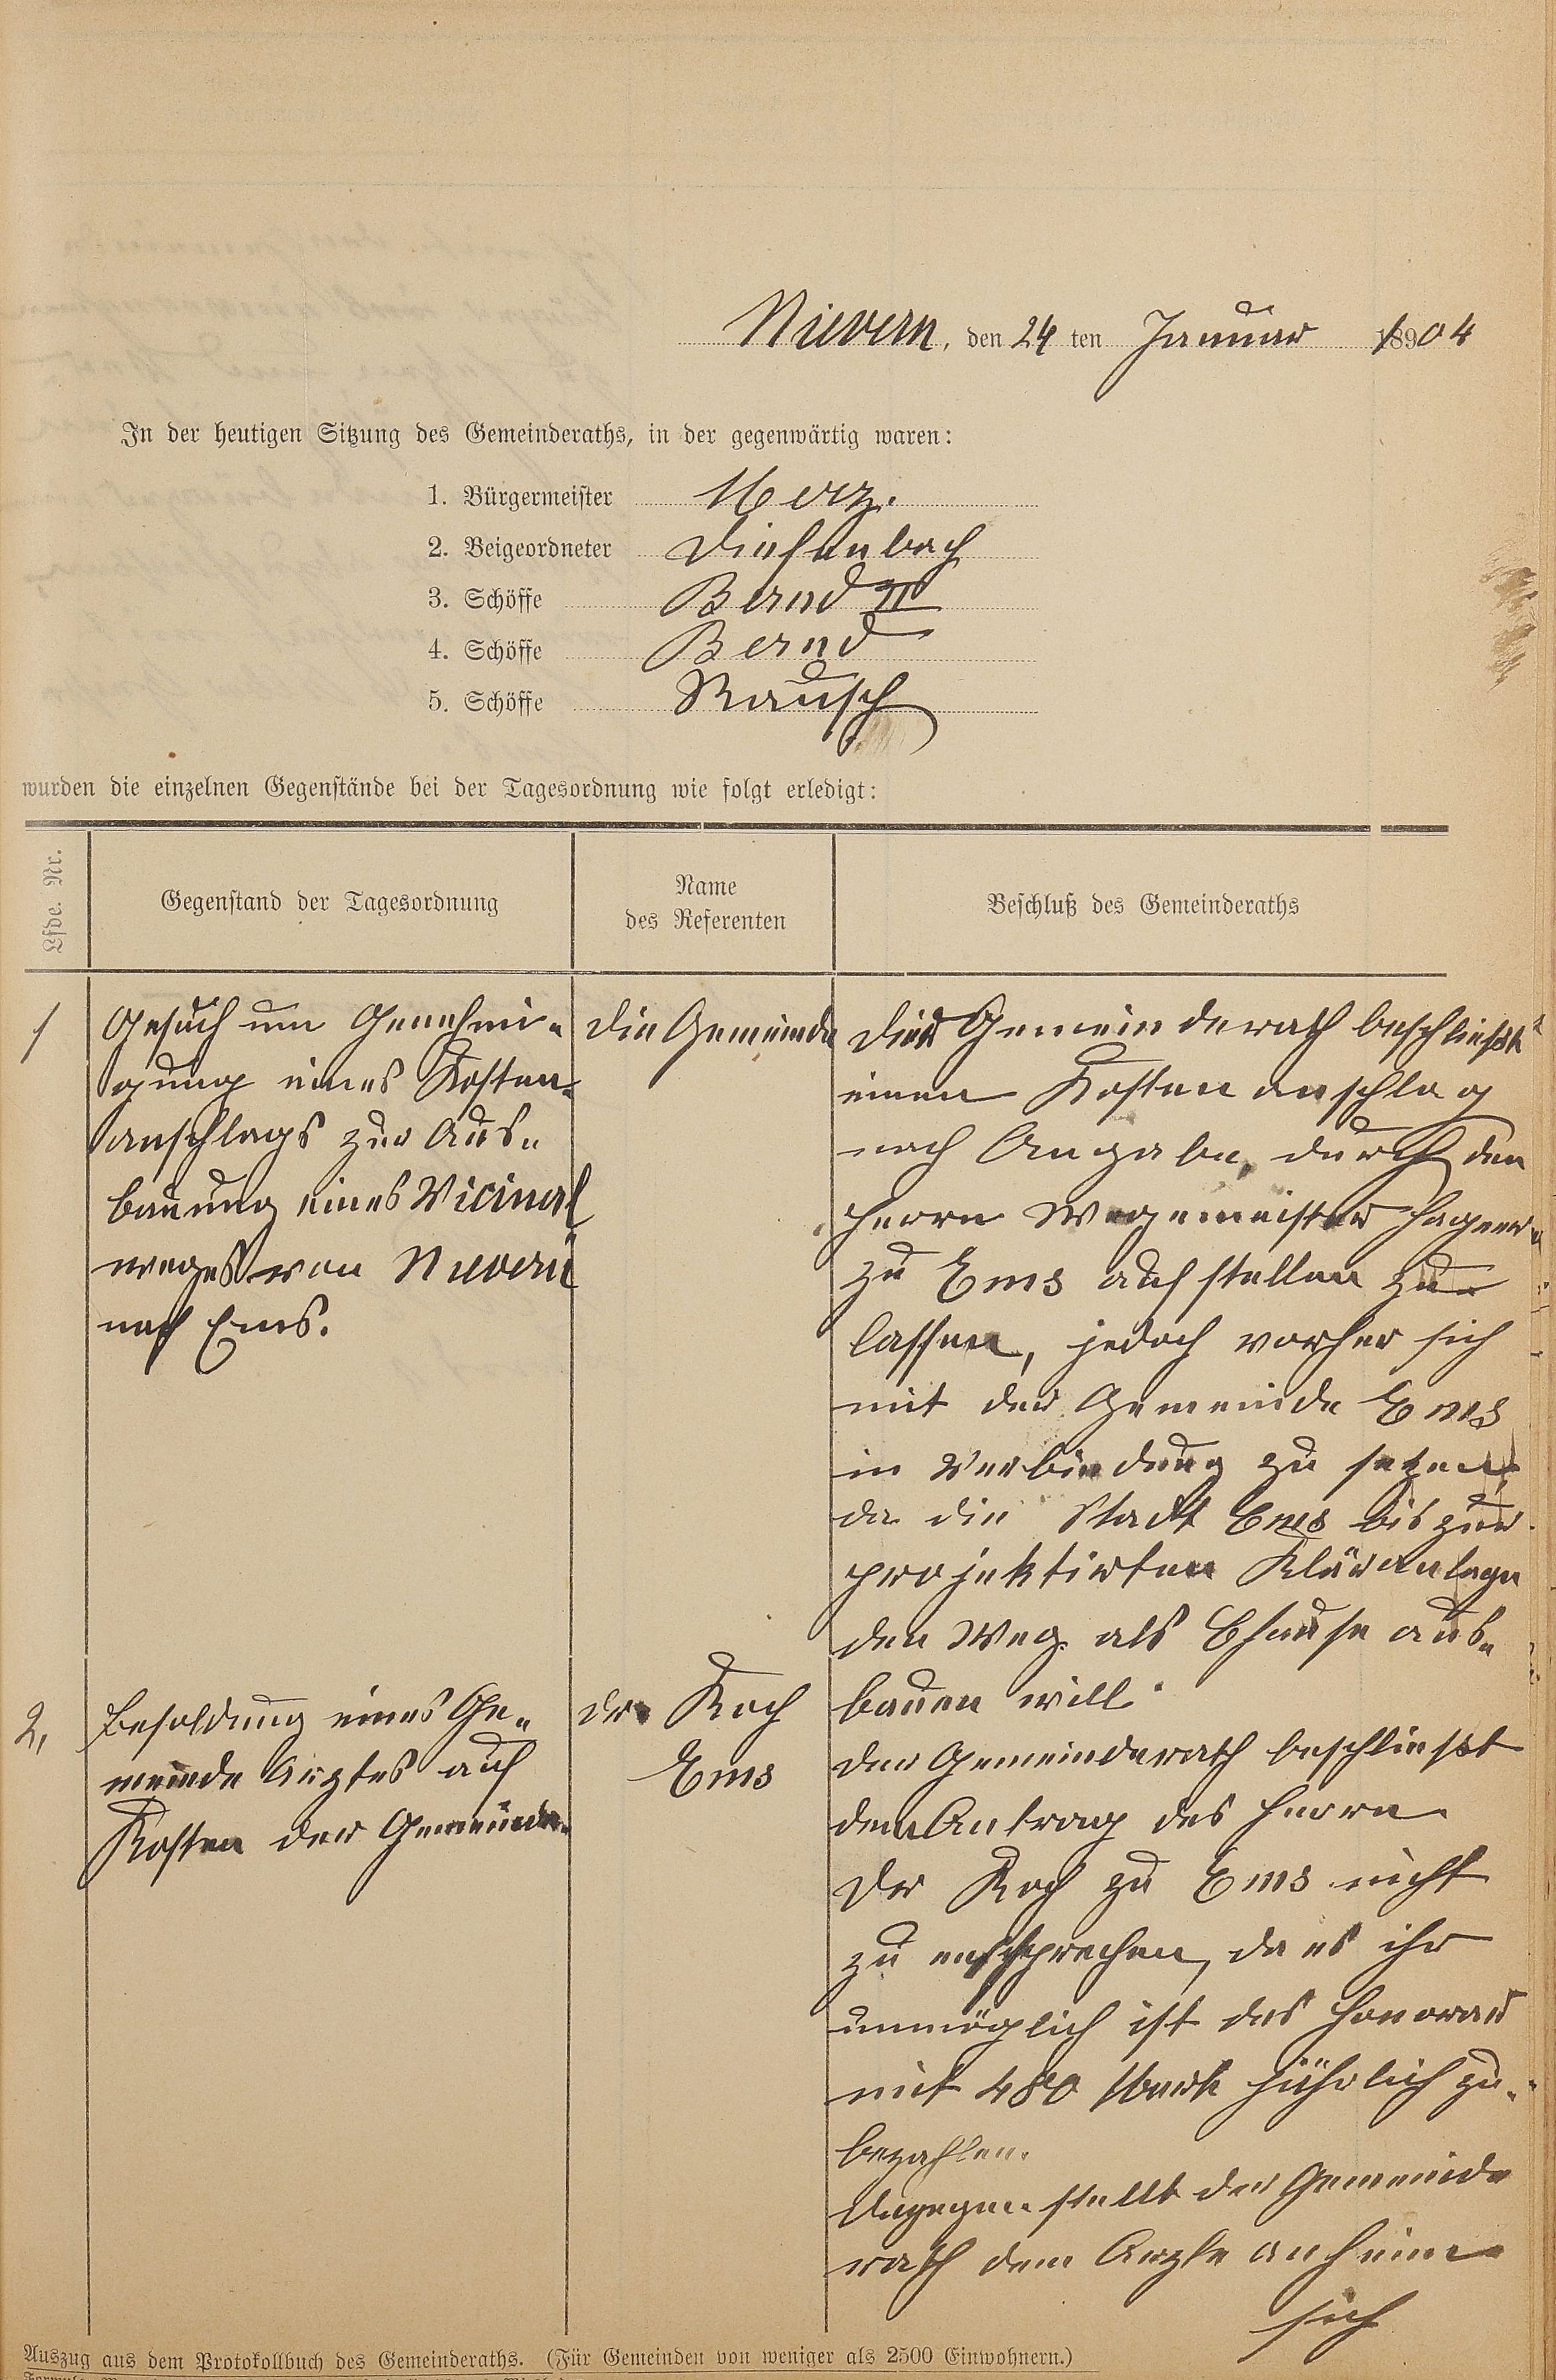 Nievern, den 24 ten Januar 1904
In der heutigen Sitzung des Gemeinderaths, in der gegenwärtig waren:
1. Bürgermeister Merz.
2. Beigeordneter Diefenbach
3. Schöffe Bernd II
4. Schöffe Bernd
5. Schöffe Rausch
wurden die einzelnen Gegenstände bei der Tagesordnung wie folgt erledigt:
Lfde. Nr.
Gegenstand der Tagesordnung
Name
des Referenten
Beschluß des Gemeinderaths
1
Gesuch um Genehmi-
gung eines Kosten-
anschlags zur Aus-
bauung eines Vicinal
weges von Nievern
nach Ems.
die Gemeinde
Der Gemeinderath beschließt
einen Kostenanschlag
nach Angabe, durch den
Herrn Wegemeister
zu Ems aufstellen zu
lassen, jedoch vorher sich
mit der Gemeinde Ems
in Verbindung zu setzen,
da die Stadt Ems bis zur
projektirten Kläranlage
den Weg als Chause aus-
bauen will.
2,
Besoldung eines Ge-
meinde Arztes auf
Kosten der Gemeinde.
Dr. Koch
Ems
Der Gemeinderath beschließt
dem Antrag des Herrn
Dr Koch zu Ems nicht
zu entsprechen, da es ihr
unmöglich ist das Honorar
mit 480 Mark jährlich zu
bezahlen.
Dagegen stellt der Gemeinde
rath dem Arzte anheim
sich
Auszug aus dem Protokollbuch des Gemeinderaths. (Für Gemeinden von weniger als 2500 Einwohnern.)